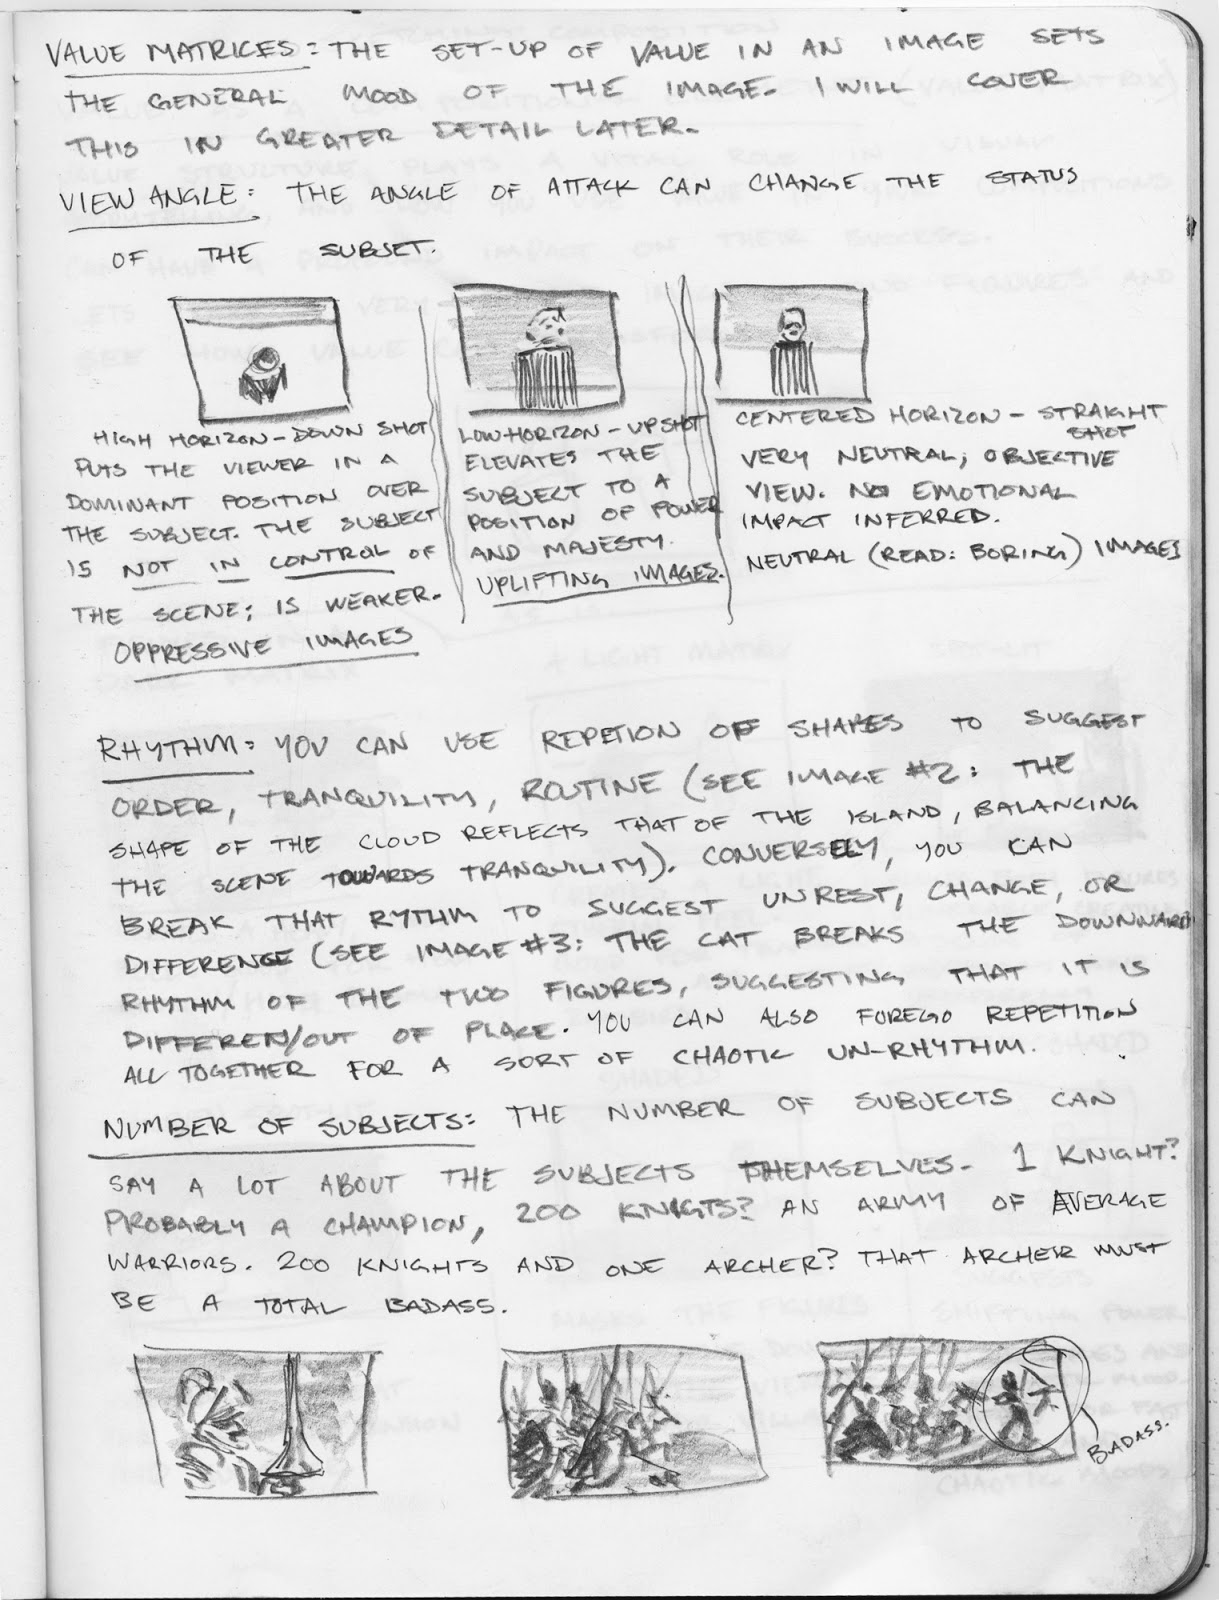 VALUE MATRICES: THE SET-UP OF VALUE IN AN IMAGE SETS
THE GENERAL MOOD OF THE IMAGE. I WILL COVER
THIS IN GREATER DETAIL LATER.
VIEW ANGLE: THE ANGLE OF ATTACK CAN CHANGE THE STATUS
OF THE SUBJET.
HIGH HORIZON - DOWN SHOT
PUTS THE VIEWER IN A
DOMINANT POSITION OVER
THE SUBJECT. THE SUBJECT
IS NOT IN CONTROL OF
THE SCENE; IS WEAKER.
OPPRESSIVE IMAGES
LOW HORIZON - UPSHOT
ELEVATES THE
SUBJECT TO A
POSITION OF POWER
AND MAJESTY.
UPLIFTING IMAGES.
CENTERED HORIZON - STRAIGHT
SHOT
VERY NEUTRAL, OBJECTIVE
VIEW. NO EMOTIONAL
IMPACT INFERRED.
NEUTRAL (READ: BORING) IMAGES
RHYTHM: YOU CAN USE REPETION OF SHAPES TO SUGGEST
ORDER, TRANQUILITY, ROUTINE (SEE IMAGE #2: THE
SHAPE OF THE CLOUD REFLECTS THAT OF THE ISLAND, BALANCING
THE SCENE TOWARDS TRANQUILITY). CONVERSELY, YOU CAN
BREAK THAT RYTHM TO SUGGEST UNREST, CHANGE, OR
DIFFERENCE (SEE IMAGE #3: THE CAT BREAKS THE DOWNWARD
RHYTHM OF THE TWO FIGURES, SUGGESTING THAT IT IS
DIFFEREN/OUT OF PLACE. YOU CAN ALSO FOREGO REPETITION
ALL TOGETHER FOR A SORT OF CHAOTIC UN-RHYTHM.
NUMBER OF SUBJECTS: THE NUMBER OF SUBJECTS CAN
SAY A LOT ABOUT THE SUBJECTS THEMSELVES. 1 KNIGHT?
PROBABLY A CHAMPION, 200 KNIGTS? AN ARMY OF AVERAGE
WARRIORS. 200 KNIGHTS AND ONE ARCHER? THAT ARCHER MUST
BE A TOTAL BADASS.
BADASS.